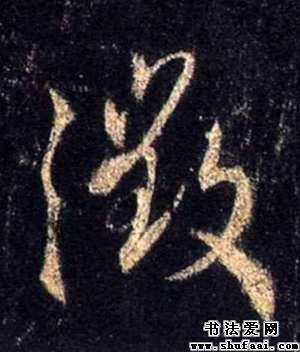 徵
书法爱网
www.shufaai.com